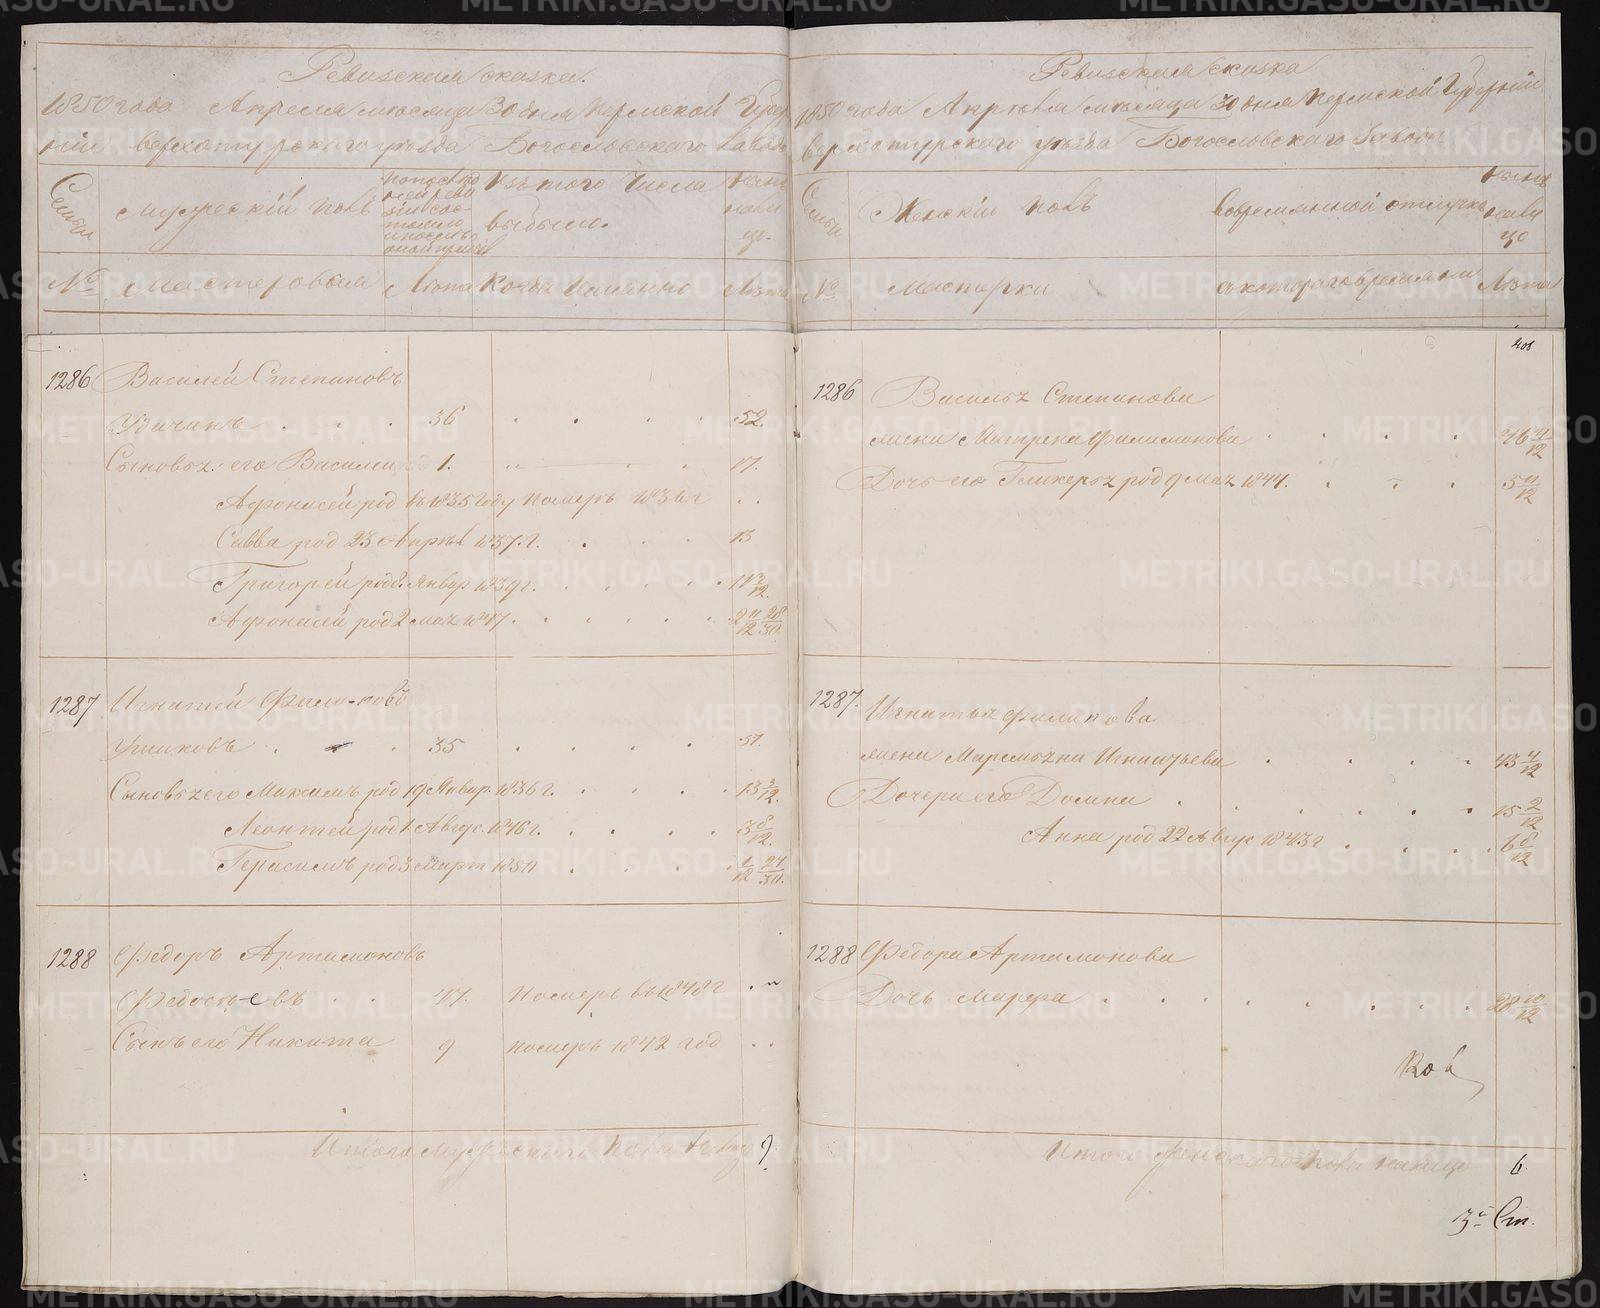 Ревизская сказка.
1850 года Апреля месяца 30 дня Пермской Губер
ніи верхотурского уезда Богословского завода
Семьи
Мужескій полъ
По послед
ней реви
зіи сос-
тояло
Изъ того числа
выбыло.
Ныне
нали
цо.
№ Мастеровыя Лета Когда Именно Лета
1286 Василей Степановъ
Удичинъ 36 52.
Сыновья его Василей 1. 17.
Афонасей род въ 1835 году померъ 1836 г
Савва род 23 Апрел 1837. г. 13
Григорей род Январ 1839 г. 11 3/12.
Афонасей род 2 мая 1847 2 11/12 28/30
1287 Игнатей Филиповъ
Ушковъ 35 51.
Сыновья его Максимъ род 19 Январ. 1836 г. 13 3/12.
Леонтей род 1 Авгус. 1846 г. 3 8/12.
Герасимъ род 3 Март 1850 1/12 27/30.
1288 Федоръ Артамоновъ
Федосеевъ 47. Помера въ 1848 г
Сынъ его Никита 9 помера 1842 год
Итого мужескаго пола на лицо 9
Ревизская сказка
1850 года Апреля месяца 30 дня Пермской Губерніи
верхотурского уезда Богословского Завода
Семьи
Женскій полъ
Во временной отлучке
Ныне
нали
цо
№ Мастерки с котораго времени Лета
408
1286 Василья Степанова
жена Матрена Филимонова 46 4/12
Дочь его Гликерья род 9 мая 1844. 5 11/12
1287. Игнатья Филипова
жена Маремьяна Игнатьева 43 4/12
Дочери его Домна 15 2/12
Анна род 22 Авгус 1843 г 6 8/12
1288 Федора Артамонова
Дочь Марфа 28 10/12
Итого женскаго пола налицо 6
3я Ст.
METRIKI.GASO-URAL.RU